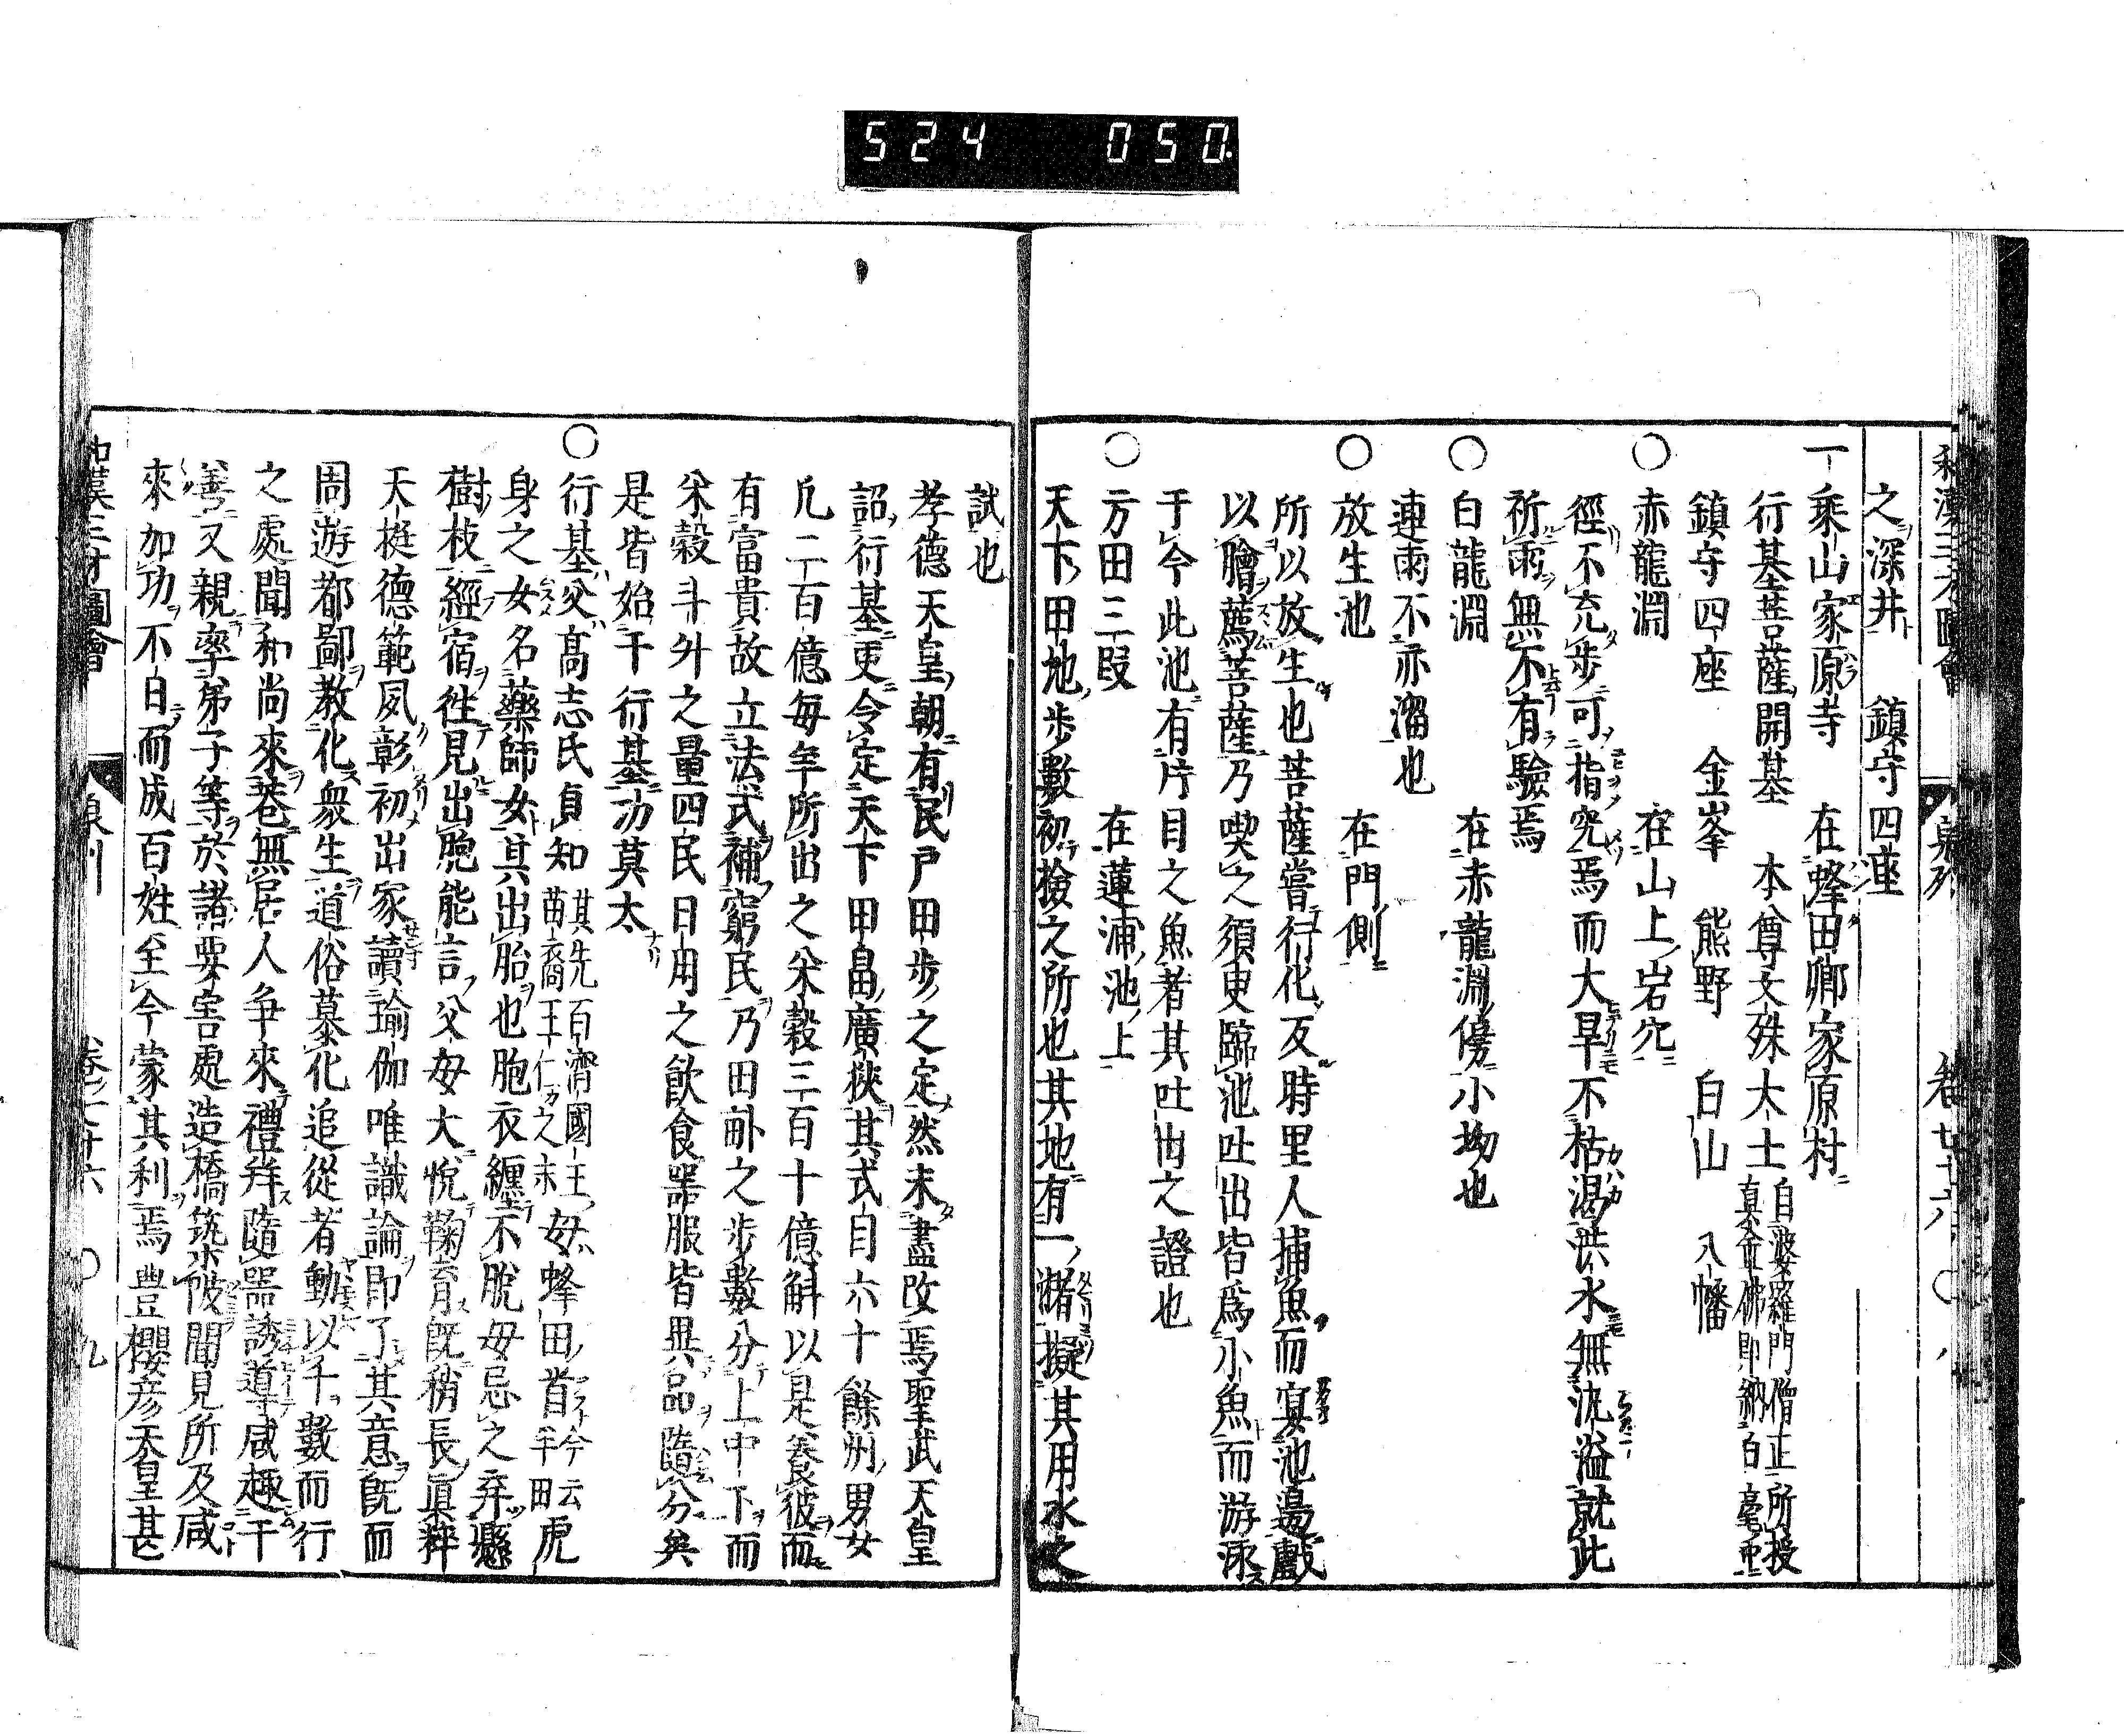 524 050
和漢三才圖會 泉州 卷之七十六 ○ 八
之深井 鎮守四座
一乘山家原寺 在蜂田鄉家原村
行基菩薩開基 本尊文殊大士 自波婆羅門僧正所授
真金佛即納白毫中
鎮守四座 金峯 熊野 白山 八幡
○ 赤龍淵 在山上岩穴
徑不充步可指究焉而大旱不枯渴洪水無沈溢就此
祈雨無不有驗焉
○ 白龍淵 在赤龍淵傍小坳也
連雨不亦溜也
○ 放生池 在門側
所以放生也菩薩嘗行化反時里人捕魚而宴池邊戲
以膾薦菩薩乃喫之須臾臨池吐出皆爲小魚而游泳
于今此池有片目之魚者其吐出之證也
○ 方田三段 在蓮浦池上
天下田地步數初撿之所也其地有一瀦擬其用水之
試也
孝德天皇朝有民戸田步之定然未盡改焉聖武天皇
詔行基更令定天下田畠廣狹其式目六十餘州男女
凡二百億每年所出之米穀三百十億斛以是養彼而
有富貴故立法式補窮民乃田畝之步數分上中下而
米穀斗外之量四民日用之飲食器服皆異品隨分矣
是皆始于行基功莫大
○ 行基父高志氏貞知 其先百濟國王
苗裔王仁之末 母蜂田首 今云
手田 虎
身之女名藥師女其出胎也胞衣纏不脫母忌之弃懸
樹枝經宿徃見出胞能言父母大悅鞠育旣稍長眞粹
天挺德範夙彰初出家讀瑜伽唯識論即了其意旣而
周遊都鄙教化衆生道俗慕化追從者動以千數而行
之處聞和尚來巷無居人爭來禮拜隨器誘導咸趣于
善又親率弟子等於諸要害處造橋筑陂聞見所及咸
來加功不日而成百姓至今蒙其利焉豊櫻彥天皇甚
和漢三才圖會 泉州 卷之七十六 ○ 九